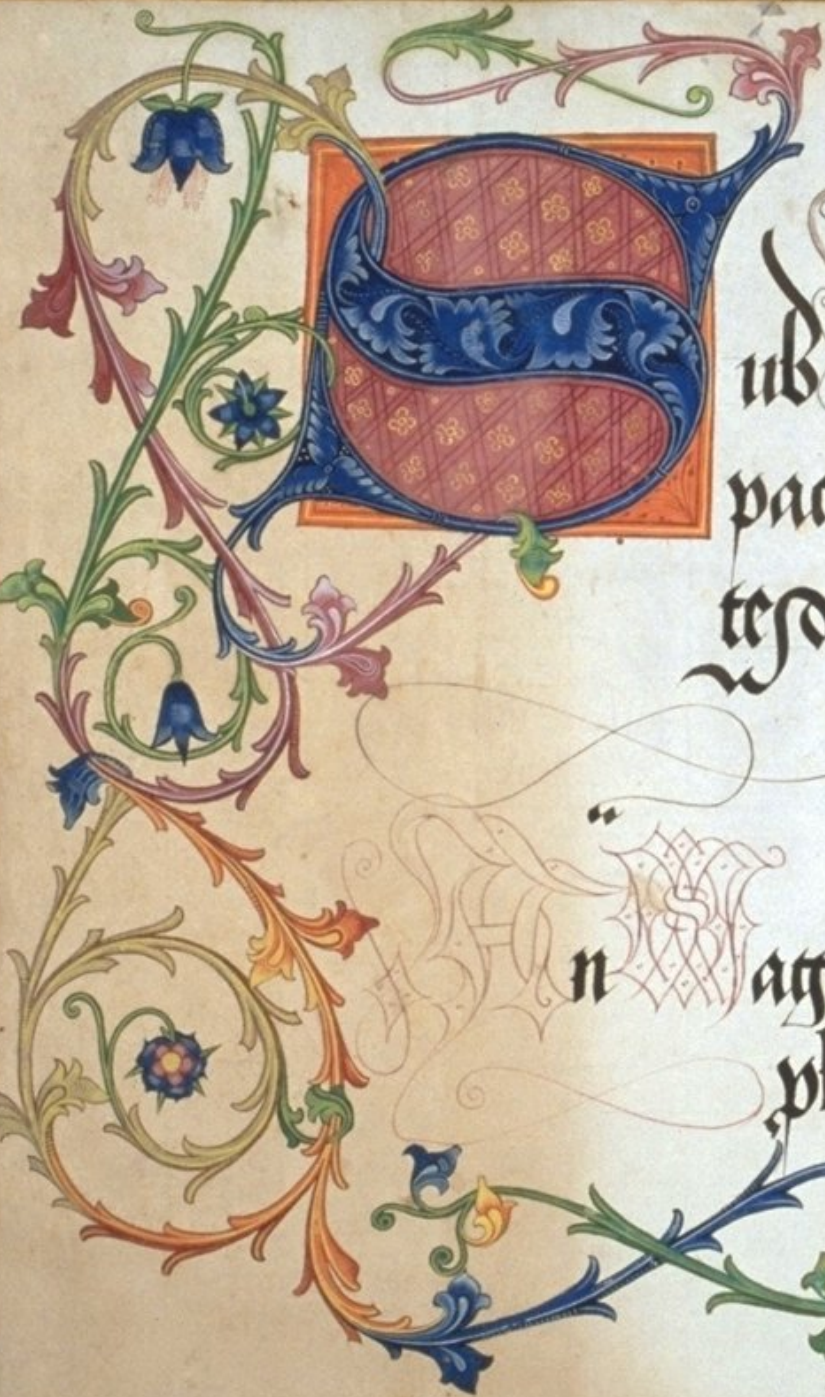 Sub
pac
tesd
An Mag
ph